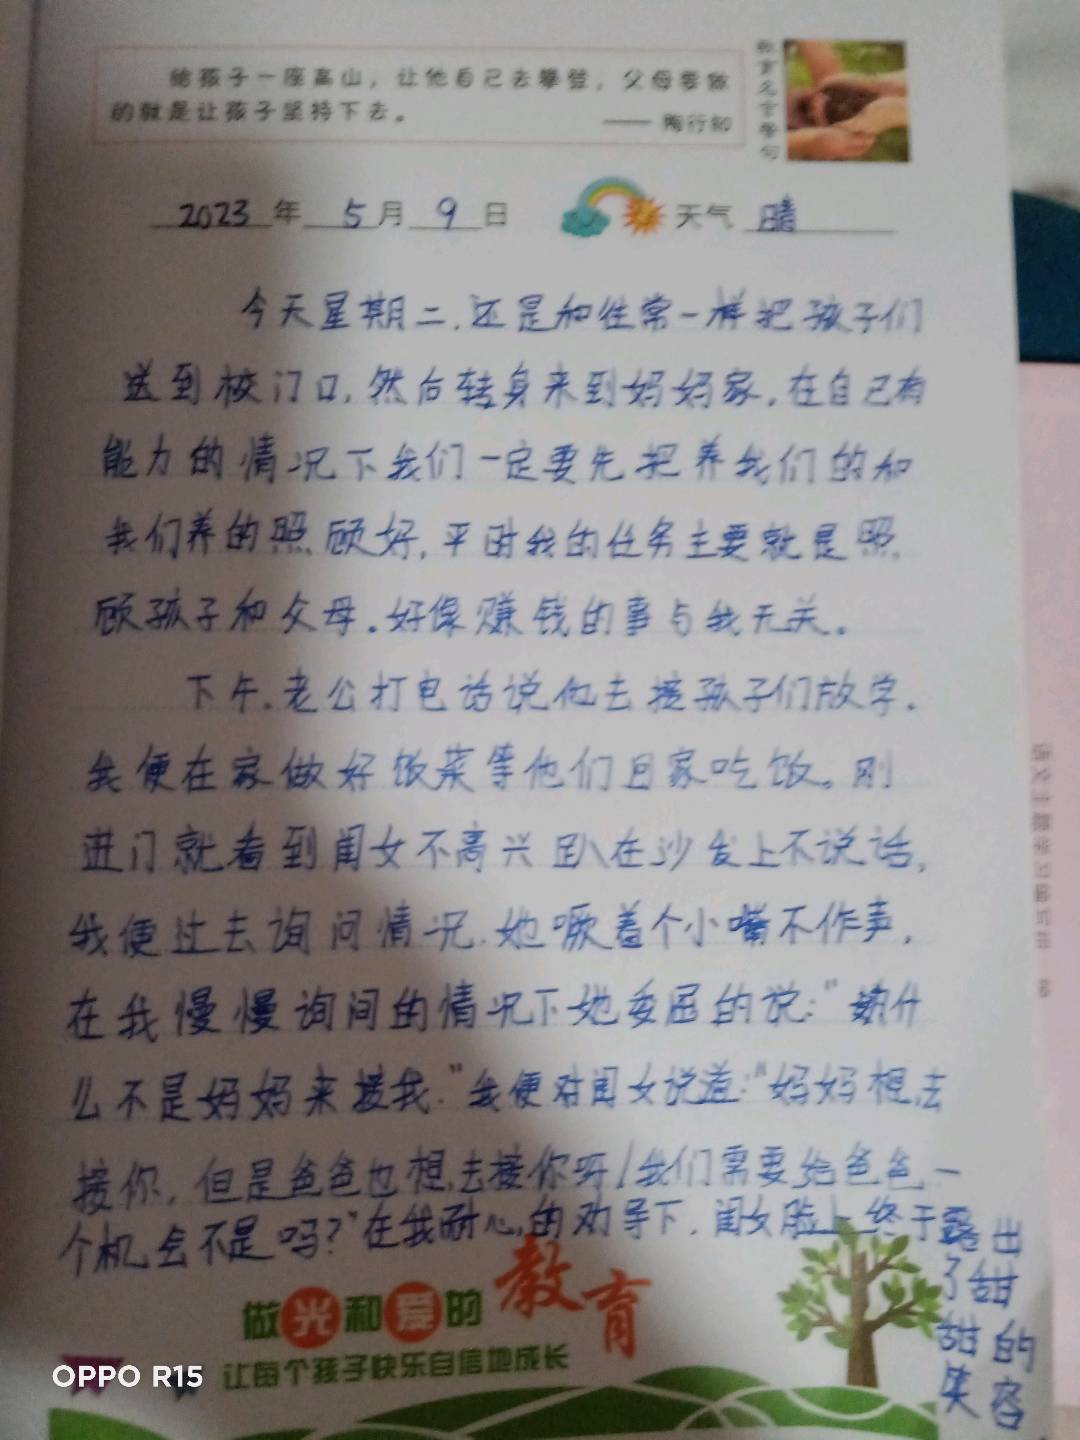 给孩子一座高山，让他自己去攀登，父母要做
的就是让孩子坚持下去。
—— 陶行知
教育名言警句
2023年 5月 9日 天气 晴
今天星期二，还是和往常一样把孩子们
送到校门口，然后转身来到妈妈家，在自己有
能力的情况下我们一定要先把养我们的和
我们养的照顾好，平时我的任务主要就是照
顾孩子和父母。好像赚钱的事与我无关。
下午，老公打电话说他去接孩子们放学，
我便在家做好饭菜等他们回家吃饭。刚
进门就看到闺女不高兴趴在沙发上不说话，
我便过去询问情况，她噘着个小嘴不作声，
在我慢慢询问的情况下她委屈的说：“为什
么不是妈妈来接我。”我便对闺女说道：“妈妈想去
接你，但是爸爸也想去接你呀！我们需要给爸爸一
个机会不是吗？”在我耐心的劝导下，闺女脸上终于露出
了甜
甜的
笑容
做光和爱的教育
让每个孩子快乐自信地成长
OPPO R15